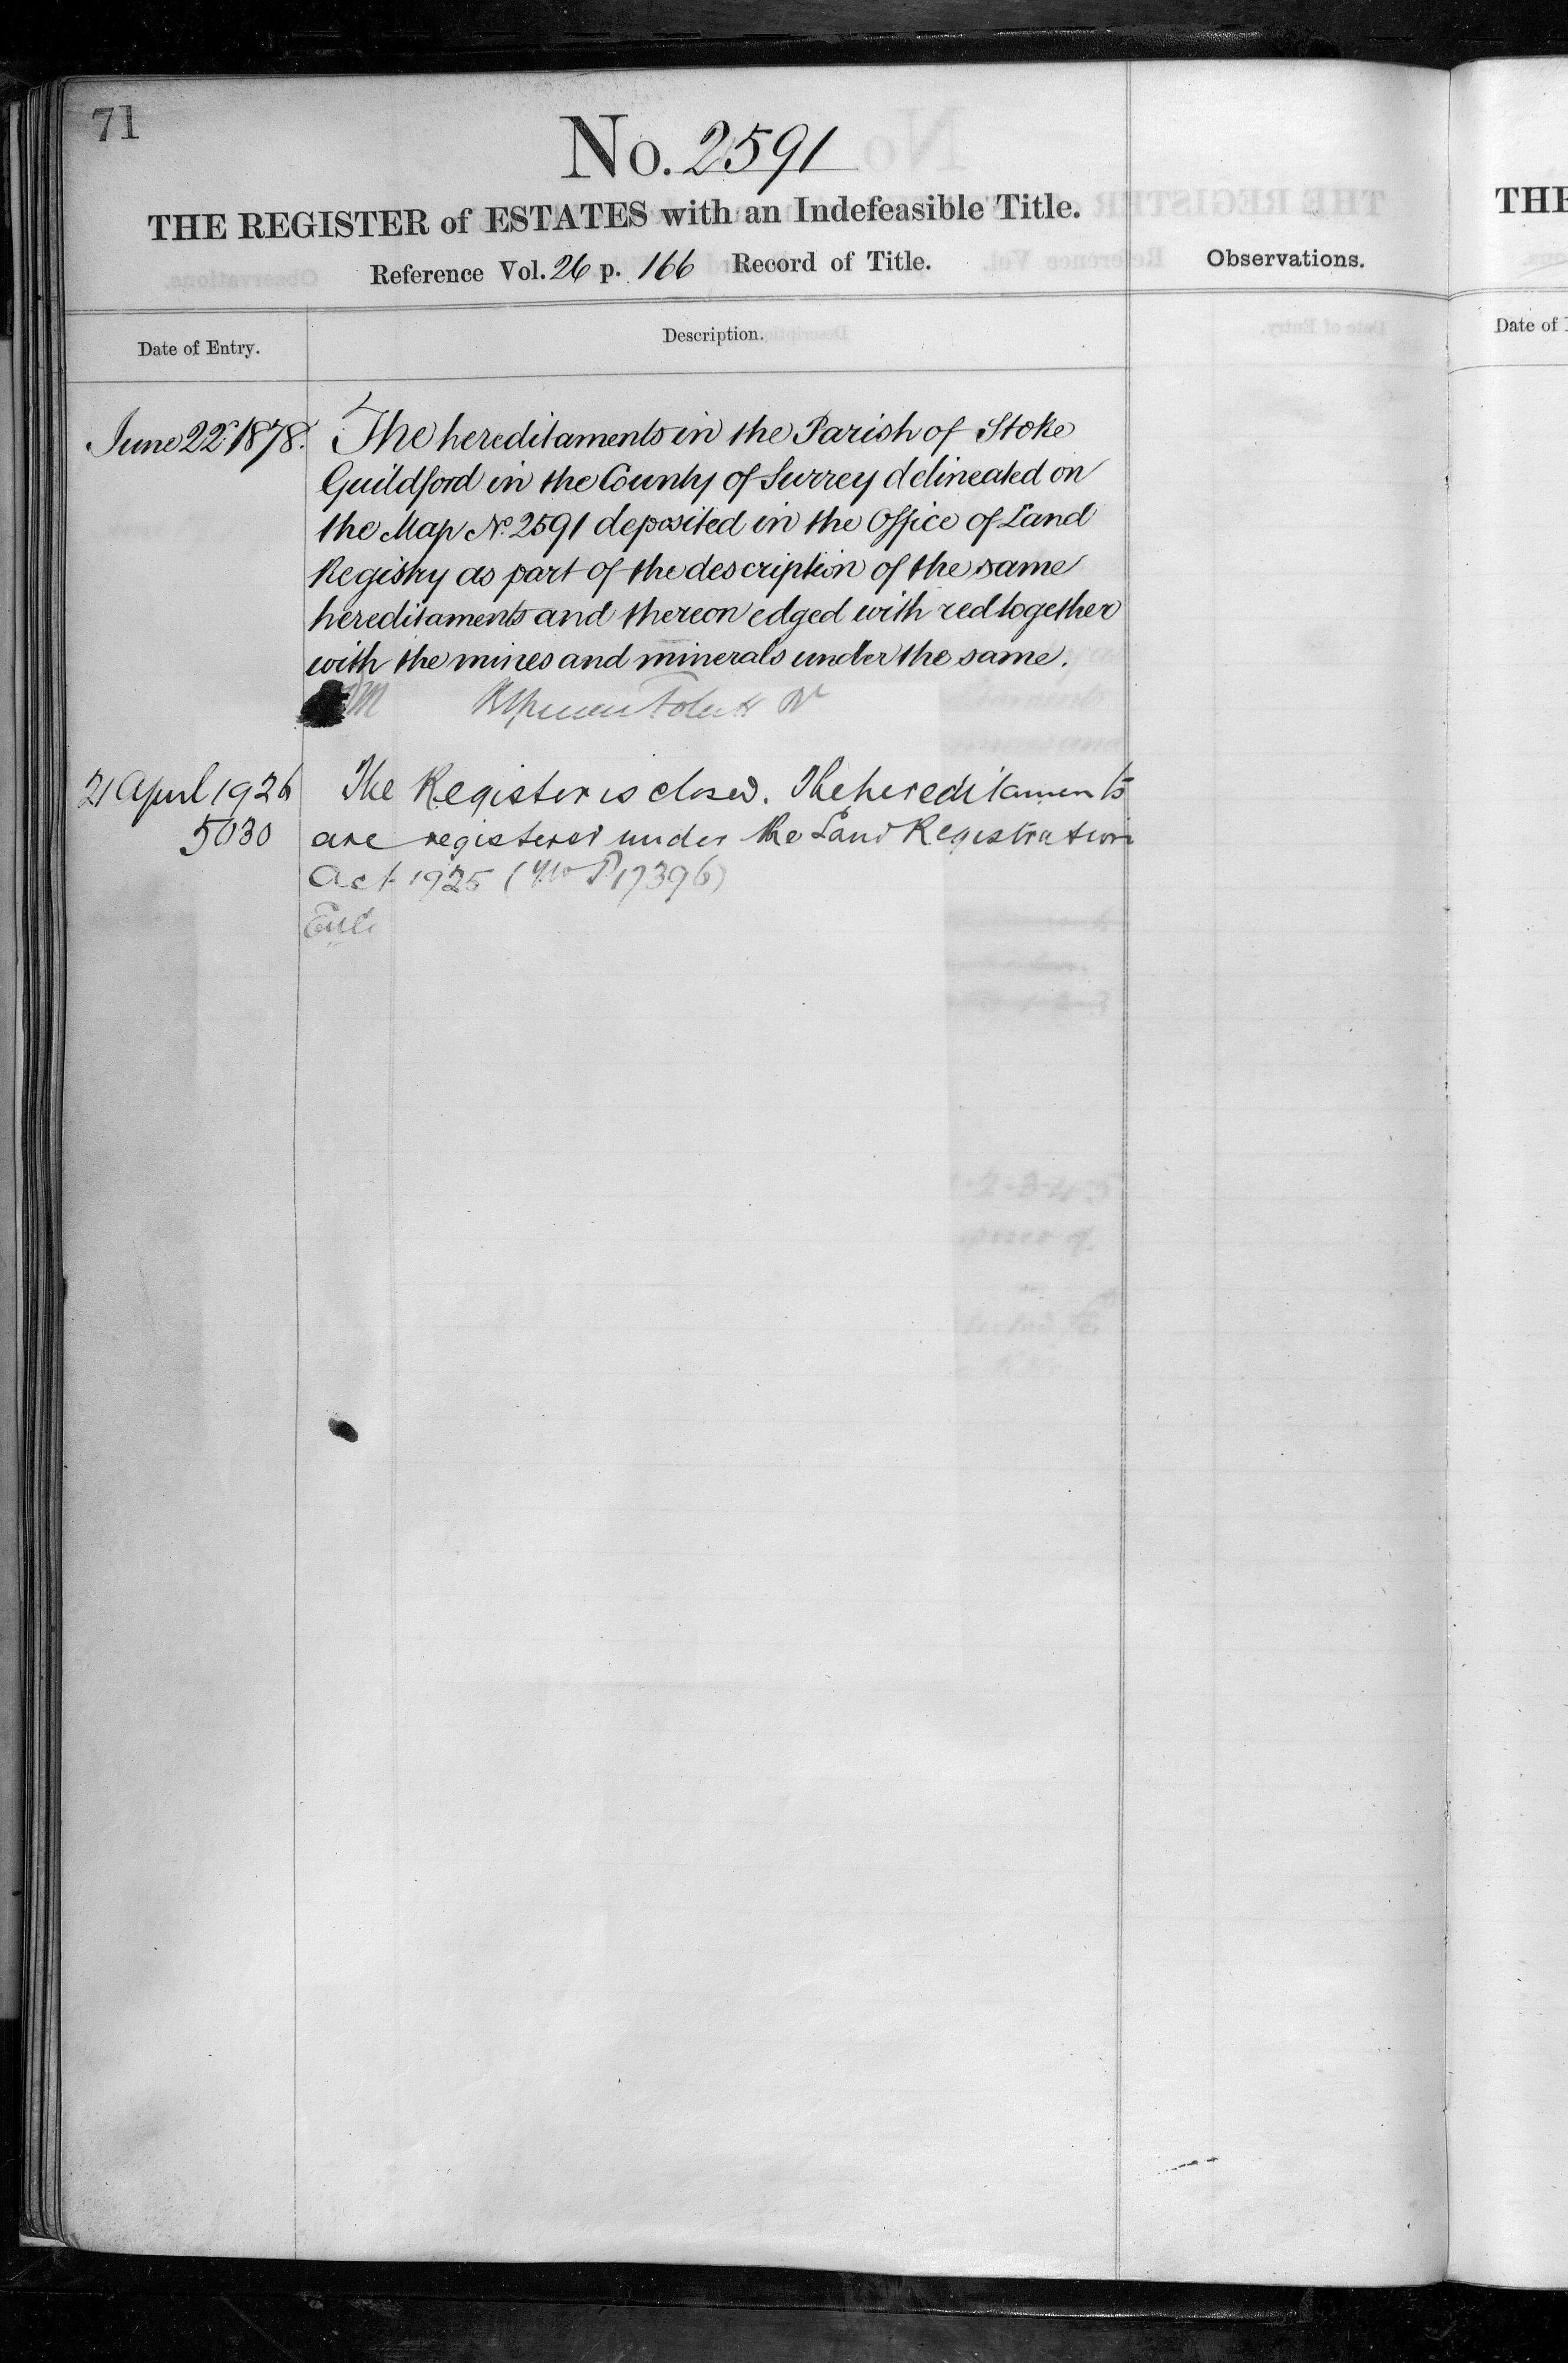 71
No. 2591
THE REGISTER of ESTATES with an Indefeasible Title.
Reference Vol. 26 p. 166 Record of Title.
Observations.
Date of Entry.
Description.
June 22 1878. The hereditaments in the Parish of Stoke
Guildford in the County of Surrey delineated on
the Map No. 2591 deposited in the Office of Land
Registry as part of the description of the same
hereditaments and thereon edged with red together
with the mines and minerals under the same.
21 April 1926 The Register is closed. The hereditaments
5030 are registered under the Land Registration
Act 1925 ( P17396)
THE
Date of